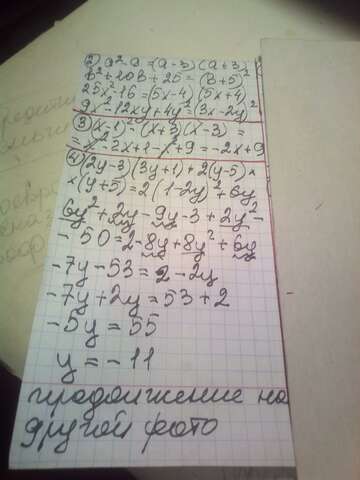 2) a²-9=(a-3)(a+3)
b²+10b+25=(b+5)²
25x²-16=(5x-4)(5x+4)
9x²-12xy+4y²=(3x-2y)²
3)(x-1)²-(x+3)(x-3)=
=x²-2x+1-x²+9=-2x+9
4)(2y-3)(3y+1)+2(y-5)×
×(y+5)=2(1-2y)²+6y
6y²+2y-9y-3+2y²-
-50=2-8y+8y²+6y
-7y-53=2-2y
-7y+2y=53+2
-5y=55
y=-11
продолжение на
другой фото